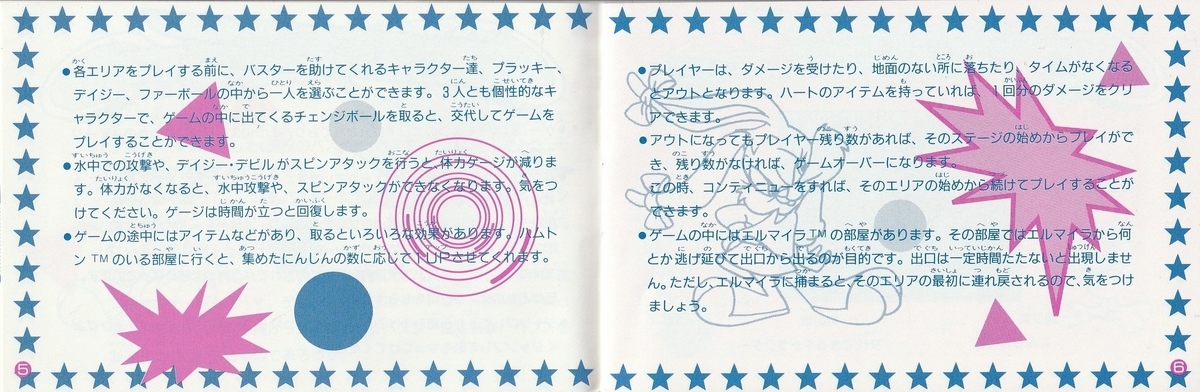 ●各エリアをプレイする前に、バスターを助けてくれるキャラクター達、プラッキー、
デイジー、ファーボールの中から一人を選ぶことができます。3人とも個性的なキ
ャラクターで、ゲームの中に出てくるチェンジボールを取ると、交代してゲームを
プレイすることができます。
●水中での攻撃や、デイジー・デビルがスピンアタックを行うと、体力ゲージが減りま
す。体力がなくなると、水中攻撃や、スピンアタックができなくなります。気をつ
けてください。ゲージは時間が立つと回復します。
●ゲームの途中にはアイテムなどがあり、取るといろいろな効果があります。ハムト
ン TMのいる部屋に行くと、集めたにんじんの数に応じて1UPさせてくれます。
5
●プレイヤーは、ダメージを受けたり、地面のない所に落ちたり、タイムがなくなる
とアウトとなります。ハートのアイテムを持っていれば、1回分のダメージをクリ
アできます。
●アウトになってもプレイヤー残り数があれば、そのステージの始めからプレイがで
き、残り数がなければ、ゲームオーバーになります。
この時、コンティニューをすれば、そのエリアの始めから続けてプレイすることが
できます。
●ゲームの中にはエルマイラ TMの部屋があります。その部屋ではエルマイラから何
とか逃げ延びて出口から出るのが目的です。出口は一定時間たたないと出現しませ
ん。ただし、エルマイラに捕まると、そのエリアの最初に連れ戻されるので、気をつけ
ましょう。
6